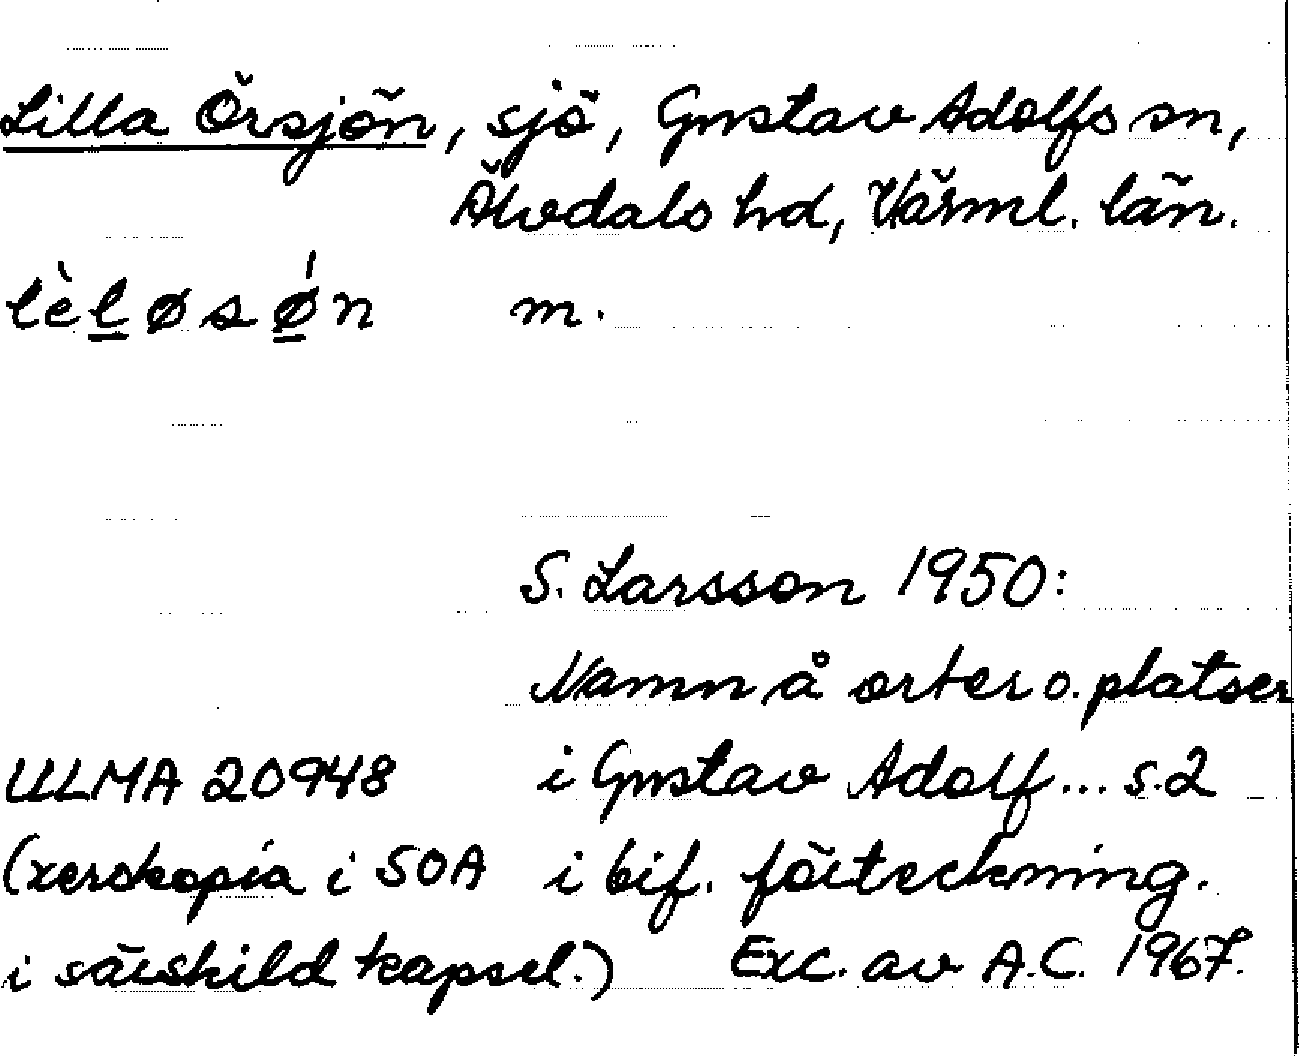 Lilla Örsjön, sjö, Gustav Adolfs sn,
Älvdals hd, Värml. län.
lèløsøn m.
S. Larsson 1950:
Namn å orter o. platser
ULMA 20948 i Gustav Adolf... s.2
(xerokopia i SOA i bif. förteckning.
i särskild kapsel.) Exc. av A.C. 1967.